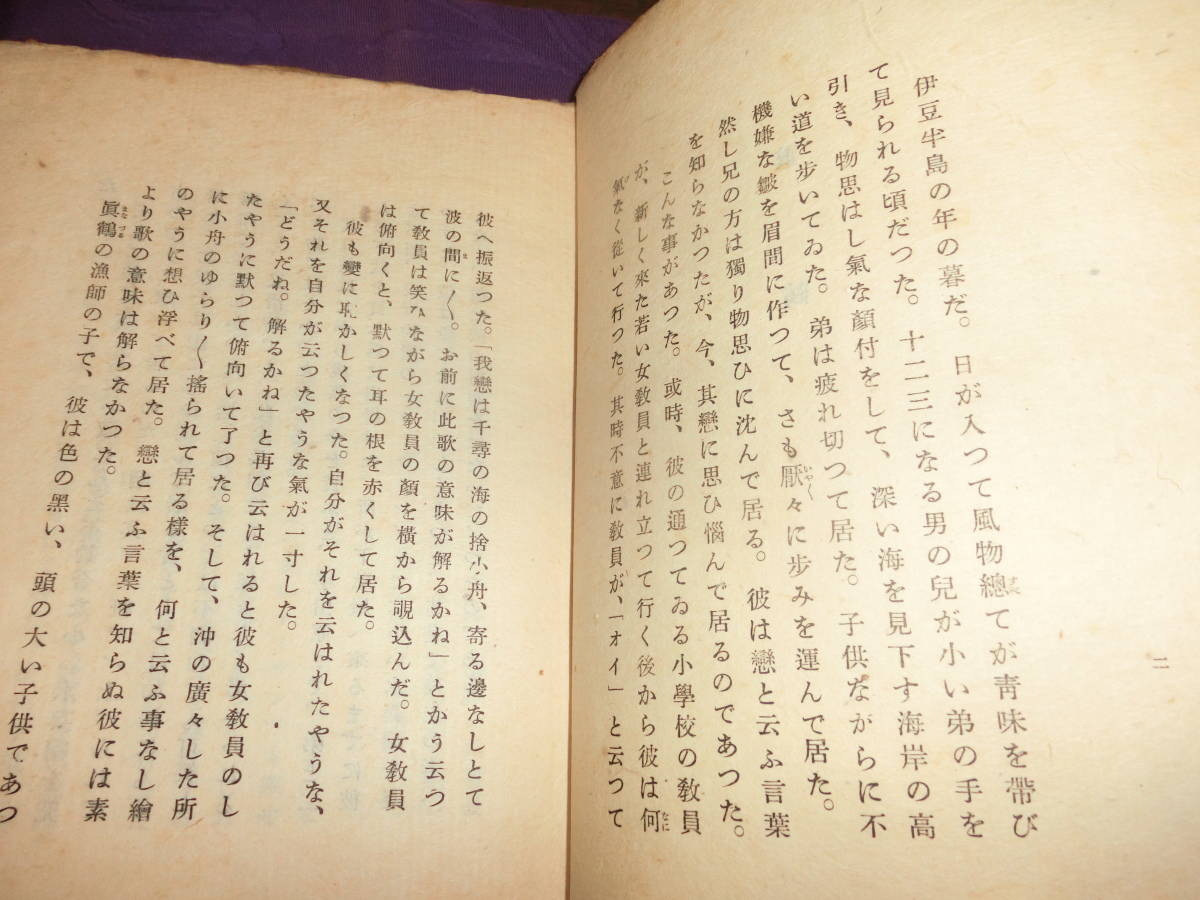 二
伊豆半島の年の暮だ。日が入つて風物總てが靑味を帶び
て見られる頃だつた。十二三になる男の兒が小い弟の手を
引き、物思はし氣な顏付をして、深い海を見下す海岸の高
い道を歩いてゐた。弟は疲れ切つて居た。子供ながらに不
機嫌な皺を眉間に作つて、さも厭々に歩みを運んで居た。
然し兄の方は獨り物思ひに沈んで居る。彼は戀と云ふ言葉
を知らなかつたが、今、其戀に思ひ惱んで居るのであつた。
こんな事があつた。或時、彼の通つてゐる小學校の敎員
が、新しく來た若い女敎員と連れ立つて行く後から彼は何
氣なく從いて行つた。其時不意に敎員が、「オイ」と云つて
彼へ振返つた。「我戀は千尋の海の捨小舟、寄る邊なしとて
波の間に〱。お前に此歌の意味が解るかね」とかう云つ
て敎員は笑ひながら女敎員の顏を橫から覗込んだ。女敎員
は俯向くと、默つて耳の根を赤くして居た。
彼も變に恥かしくなつた。自分がそれを云はれたやうな、
又それを自分が云つたやうな氣が一寸した。
「どうだね。解るかね」と再び云はれると彼も女敎員のし
たやうに默つて俯向いて了つた。そして、沖の廣々した所
に小舟のゆらり〱搖られて居る樣を、何と云ふ事なし繪
のやうに想ひ浮べて居た。戀と云ふ言葉を知らぬ彼には素
より歌の意味は解らなかつた。
眞鶴の漁師の子で、彼は色の黑い、頭の大い子供であつ